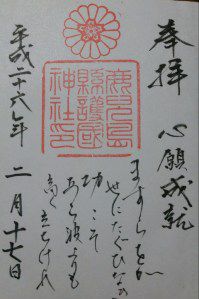 奉拝　心願成就
鹿兒島
縣護國
神社印
ますらをが
世にたぐひなき
功こそ
あら波よりも
高く立ちけれ
平成二十六年　二月十七日